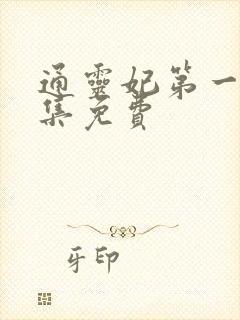 通靈妃第一
集免費
牙印